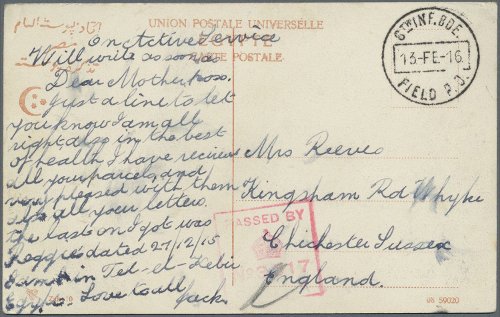 UNION POSTALE UNIVERSELLE
EGYPTE
CARTE POSTALE
On Active Service
Will write as soon as
poss.
Dear Mother
Just a line to let
you know I am all
right also in the best
of health, I have recieved
all your parcels, and
very pleased with them
also all your letters.
the last on I got was
Reggies dated 27/12/15
I am in Tel-el-Kebir
Egypt. Love to all
Jack.
6TH INF. BDE.
13-FE-16
FIELD P.O.
Mrs Reeves
Kingsham Rd Whyke
Chichester Sussex
England.
PASSED BY
98 59020